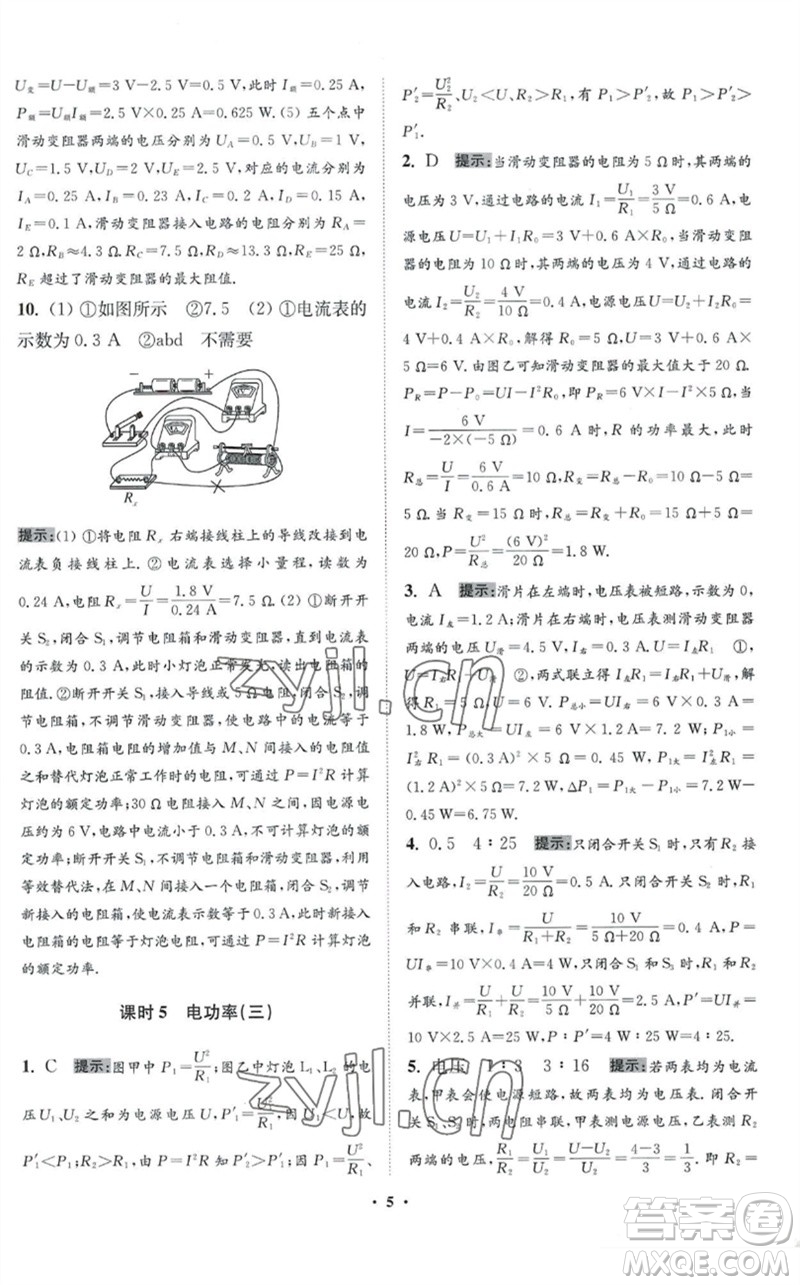 U变=U-U额=3 V-2.5 V=0.5 V,此时 I额=0.25 A,
P额=U额I额=2.5 V×0.25 A=0.625 W.(5) 五个点中
滑动变阻器两端的电压分别为 UA=0.5 V、UB=1 V、
UC=1.5 V、UD=2 V、UE=2.5 V,对应的电流分别为
IA=0.25 A、IB=0.23 A、IC=0.2 A、ID=0.15 A、
IE=0.1 A.滑动变阻器接入电路的电阻分别为 RA=
2 Ω,RB≈4.3 Ω.RC=7.5 Ω,RD≈13.3 Ω,RE=25 Ω,
RE 超过了滑动变阻器的最大阻值.
10. (1) ①如图所示 ②7.5 (2) ①电流表的
示数为0.3 A ②abd 不需要
− +
Rx
提示:(1) ①将电阻 Rx 右端接线柱上的导线改接到电
流表接线柱上. ②电流表选择小量程,读数为
0.24 A,电阻 Rx=U/I=1.8 V/0.24 A=7.5 Ω.(2) ①断开开
关 S2,闭合 S1,调节电阻箱和滑动变阻器,直到电流表
的示数为0.3 A,此时小灯泡正常发光,读出电阻箱的
阻值.②断开开关 S1,接入导线或5 Ω电阻,闭合 S2,调
节电阻箱,不调节滑动变阻器,使电路中的电流等于
0.3 A,此时电阻箱的电阻值与 M、N 间接入的电阻值
之和代替灯泡正常工作时的电阻,可通过 P=I²R 计算
灯泡的额定功率;30 Ω电阻接入 M、N 之间,因电源电
压约为6 V,电路中电流小于0.3 A,不可计算灯泡的
额定功率;断开开关 S1,调节滑动变阻器、电阻箱,利用
等效替代法,在 M、N 之间接入一个电阻箱,调节这个
新接入的电阻箱,使电流等于0.3 A,此时 M、N 之间接
入的电阻箱的电阻等于灯泡电阻,可通过 P=I²R 计算灯泡
的额定功率.
课时5 电功率(三)
1. C 提示:图甲中 P1=U²/R1;图乙中灯泡 L1、L2 的电
压 U1、U2 之和为电源电压 U,P′1=U1²/R1,因 U1<U,故
P′1<P1;R2>R1,因 P1=U²/R1、
P′2=U2²/R2、U2<U、R2>R1,有 P1>P′2,故 P1>P′2>
P′1.
2. D 提示:当滑动变阻器的电阻为5 Ω时,其两端的
电压为3 V,通过电路的电流 I1=U1/R1=3 V/5 Ω=0.6 A,电
源电压 U=U1+I1R0=3 V+0.6 A×R0.当滑动变阻器的
电阻为10 Ω时,其两端的电压为4 V,通过电路的
电流 I2=U2/R2=4 V/10 Ω=0.4 A,电源电压 U=U2+I2R0=
4 V+0.4 A×R0,解得 R0=5 Ω,则 U=4 V+0.4 A×
5 Ω=6 V.由图乙可知滑动变阻器的最大值大于20 Ω.
PR=P-P0=UI-I²R0,即 PR=6 V×I-I²×5 Ω,当
I=6 V/(-2×(-5 Ω))=0.6 A 时,R 的功率最大.
R总=U/I=6 V/0.6 A=10 Ω,R变=R总-R0=10 Ω-5 Ω=
5 Ω.当滑动变阻器的电阻为15 Ω时,R总=R变+R0=
20 Ω,P=U²/R总=(6 V)²/20 Ω=1.8 W.
3. A 提示:滑片在左端时,电压表被短路,示数为0,
电流 I左=1.2 A;滑片在右端时,电压表测滑动变阻
器两端的电压 U滑=4.5 V,I右=0.3 A.U=I左R1 ①,
U=U滑+I右R1 ②,两式联立得 I左R1=U滑+I右R1,解
得 R1=5 Ω,U=6 V.P总大=UI左=6 V×1.2 A=7.2 W;P1小=
I²右R1=(0.3 A)²×5 Ω=0.45 W;P1大=I²左R1=
(1.2 A)²×5 Ω=7.2 W,ΔP1=P1大-P1小=7.2 W-
0.45 W=6.75 W.
4. 0.5 4∶25 提示:只闭合开关 S1 时,只有 R2 接
入电路,I2=U/R2=10 V/20 Ω=0.5 A.只闭合开关 S2 时,R1
和 R2 串联,I串=U/(R1+R2)=10 V/(5 Ω+20 Ω)=0.4 A,P=
UI串=10 V×0.4 A=4 W.开关均闭合时,R1 和 R2
并联,I并=U/R1+U/R2=10 V/5 Ω+10 V/20 Ω=2.5 A,P′=UI并
=10 V×2.5 A=25 W.P∶P′=4 W∶25 W=4∶25.
5. 电压 1∶3 3∶16 提示:若两表均为电流
表,甲表会使电源短路.两表均为电压表,闭合开
关 S1、S2 时,两电阻串联,甲表测电源电压,乙表测 R2
两端的电压,R1/R2=U1/U2=(U-U2)/U2=(4-3)/3=1/3.即 R2=
· 5 ·
zyjl.cn
zyjl.cn
答案圈
MXQE.COM